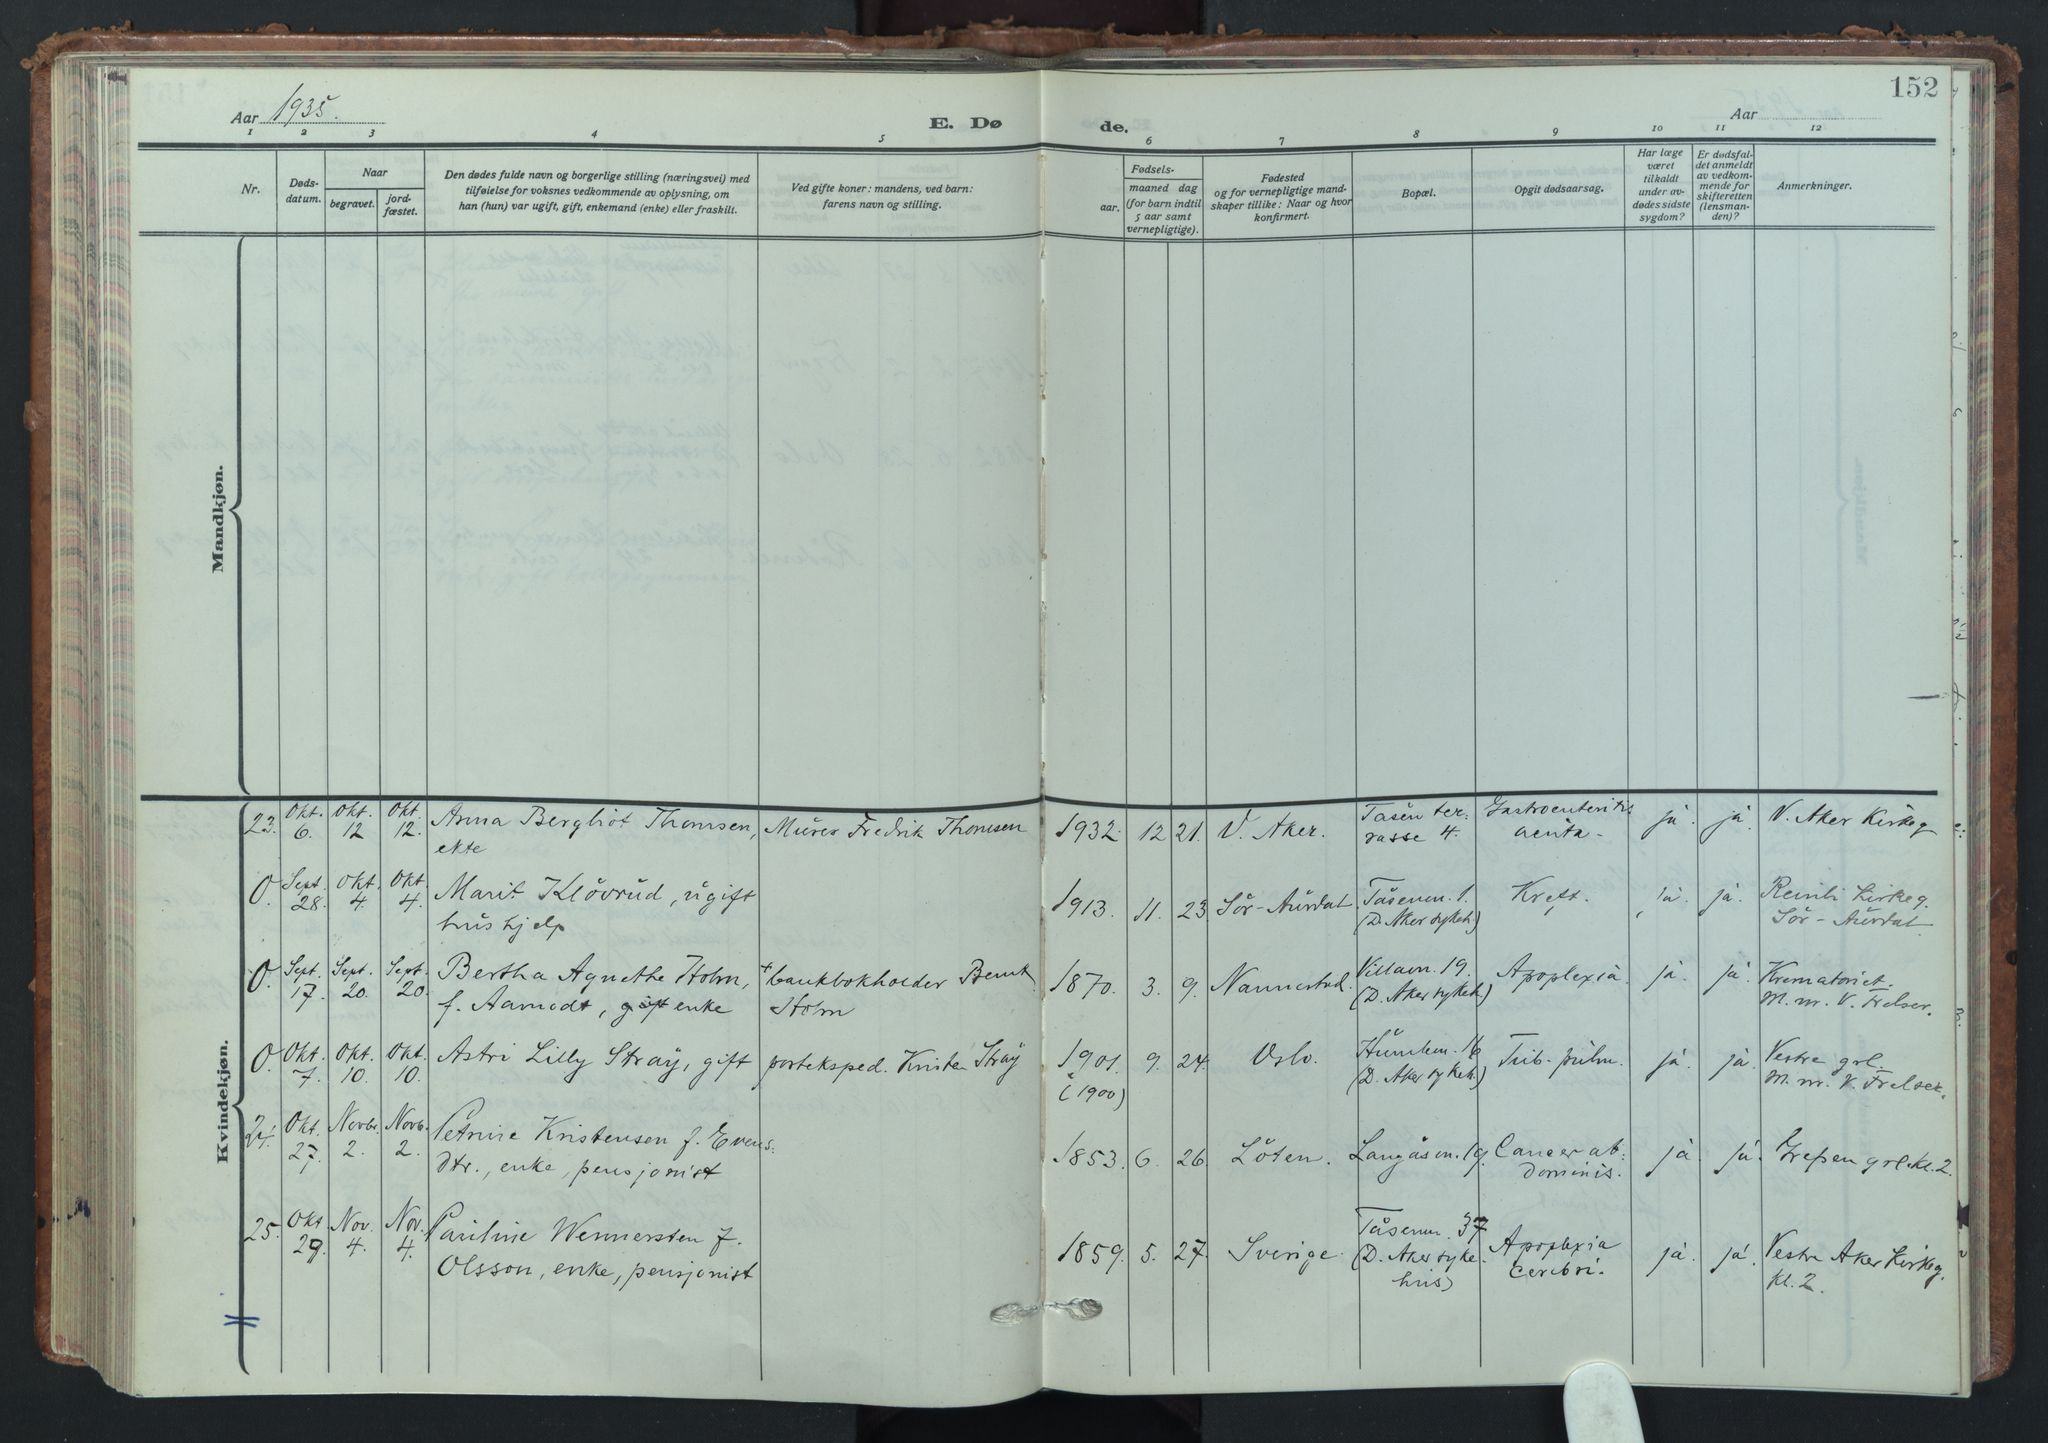 152
Aar 1935.
E. Døde.
Aar
1 2 3 4 5 6 7 8 9 10 11 12
Nr.
Døds-
datum.
Naar
begravet.
jord-
fæstet.
Den dødes fulde navn og borgerlige stilling (næringsvei) med
tilføielse for voksnes vedkommende av oplysning, om
han (hun) var ugift, gift, enkemand (enke) eller fraskilt.
Ved gifte koner: mandens, ved barn:
farens navn og stilling.
Fødsels-
aar.
maaned dag
(for barn indtil
5 aar samt
vernepligtige).
Fødested
og for vernepligtige mand-
skaper tillike: Naar og hvor
konfirmert.
Bopæl.
Opgit dødsaarsag.
Har læge
været
tilkaldt
under av-
dødes sidste
sygdom?
Er dødsfal-
det anmeldt
av vedkom-
mende for
skifteretten
(lensman-
den)?
Anmerkninger.
Mandkjøn.
Kvindekjøn.
23. Okt. 6. Okt. 12 Okt. 12. Anna Bergliot Thomsen, ekte Murer Fredrik Thomsen 1932. 12 21. V. Aker. Tåsen ter-
rasse 4. Gastroenteritis
acuta. ja. ja. V. Aker Kirkeg
0. Sept. 28. Okt. 4. Okt. 4. Marit Kløvrud, ugift
hushjelp 1913. 11. 23 Sør-Aurdal Tåsenvn. 1.
(D. Aker sykeh.) Kreft. ja. ja. Reinli Kirkeg.
Sør-Aurdal.
0. Sept. 17. Sept. 20. Sept. 20. Bertha Agnethe Holm,
f. Aamodt, gift enke + bankbokholder Bernt
Holm 1870. 3. 9. Nannestad. Villavn. 19.
(D. Aker sykeh.) Apoplexia ja. ja. Krematoriet.
M. nr. V. Frelser.
0. Okt. 7. Okt. 10. Okt. 10. Astri Lilly Stray, gift posteksped. Kristen Stray 1901.
(1900) 9. 24. Oslo. Humlevn. 16
(D. Aker sykeh.) Tub. pulm. ja. ja. Vestre grl.
M. nr. V. Frelser.
24. Okt. 27. Novbr. 2. Novb. 2. Petrine Kristensen f. Evens-
dtr., enke, pensjonist 1853. 6. 26. Løten. Langåsvn. 19. Cancer ab-
dominis. ja. ja. Grefsen grl. kl. 2.
25. Okt 29. Nov. 4. Nov. 4. Pauline Wennersten f.
Olsson, enke, pensjonist 1859. 5. 27. Sverige. Tåsenvn. 37
(D. Aker syke-
hus) Apoplexia
cerebri. ja. ja. Vestre Aker Kirkeg.
kl. 2.